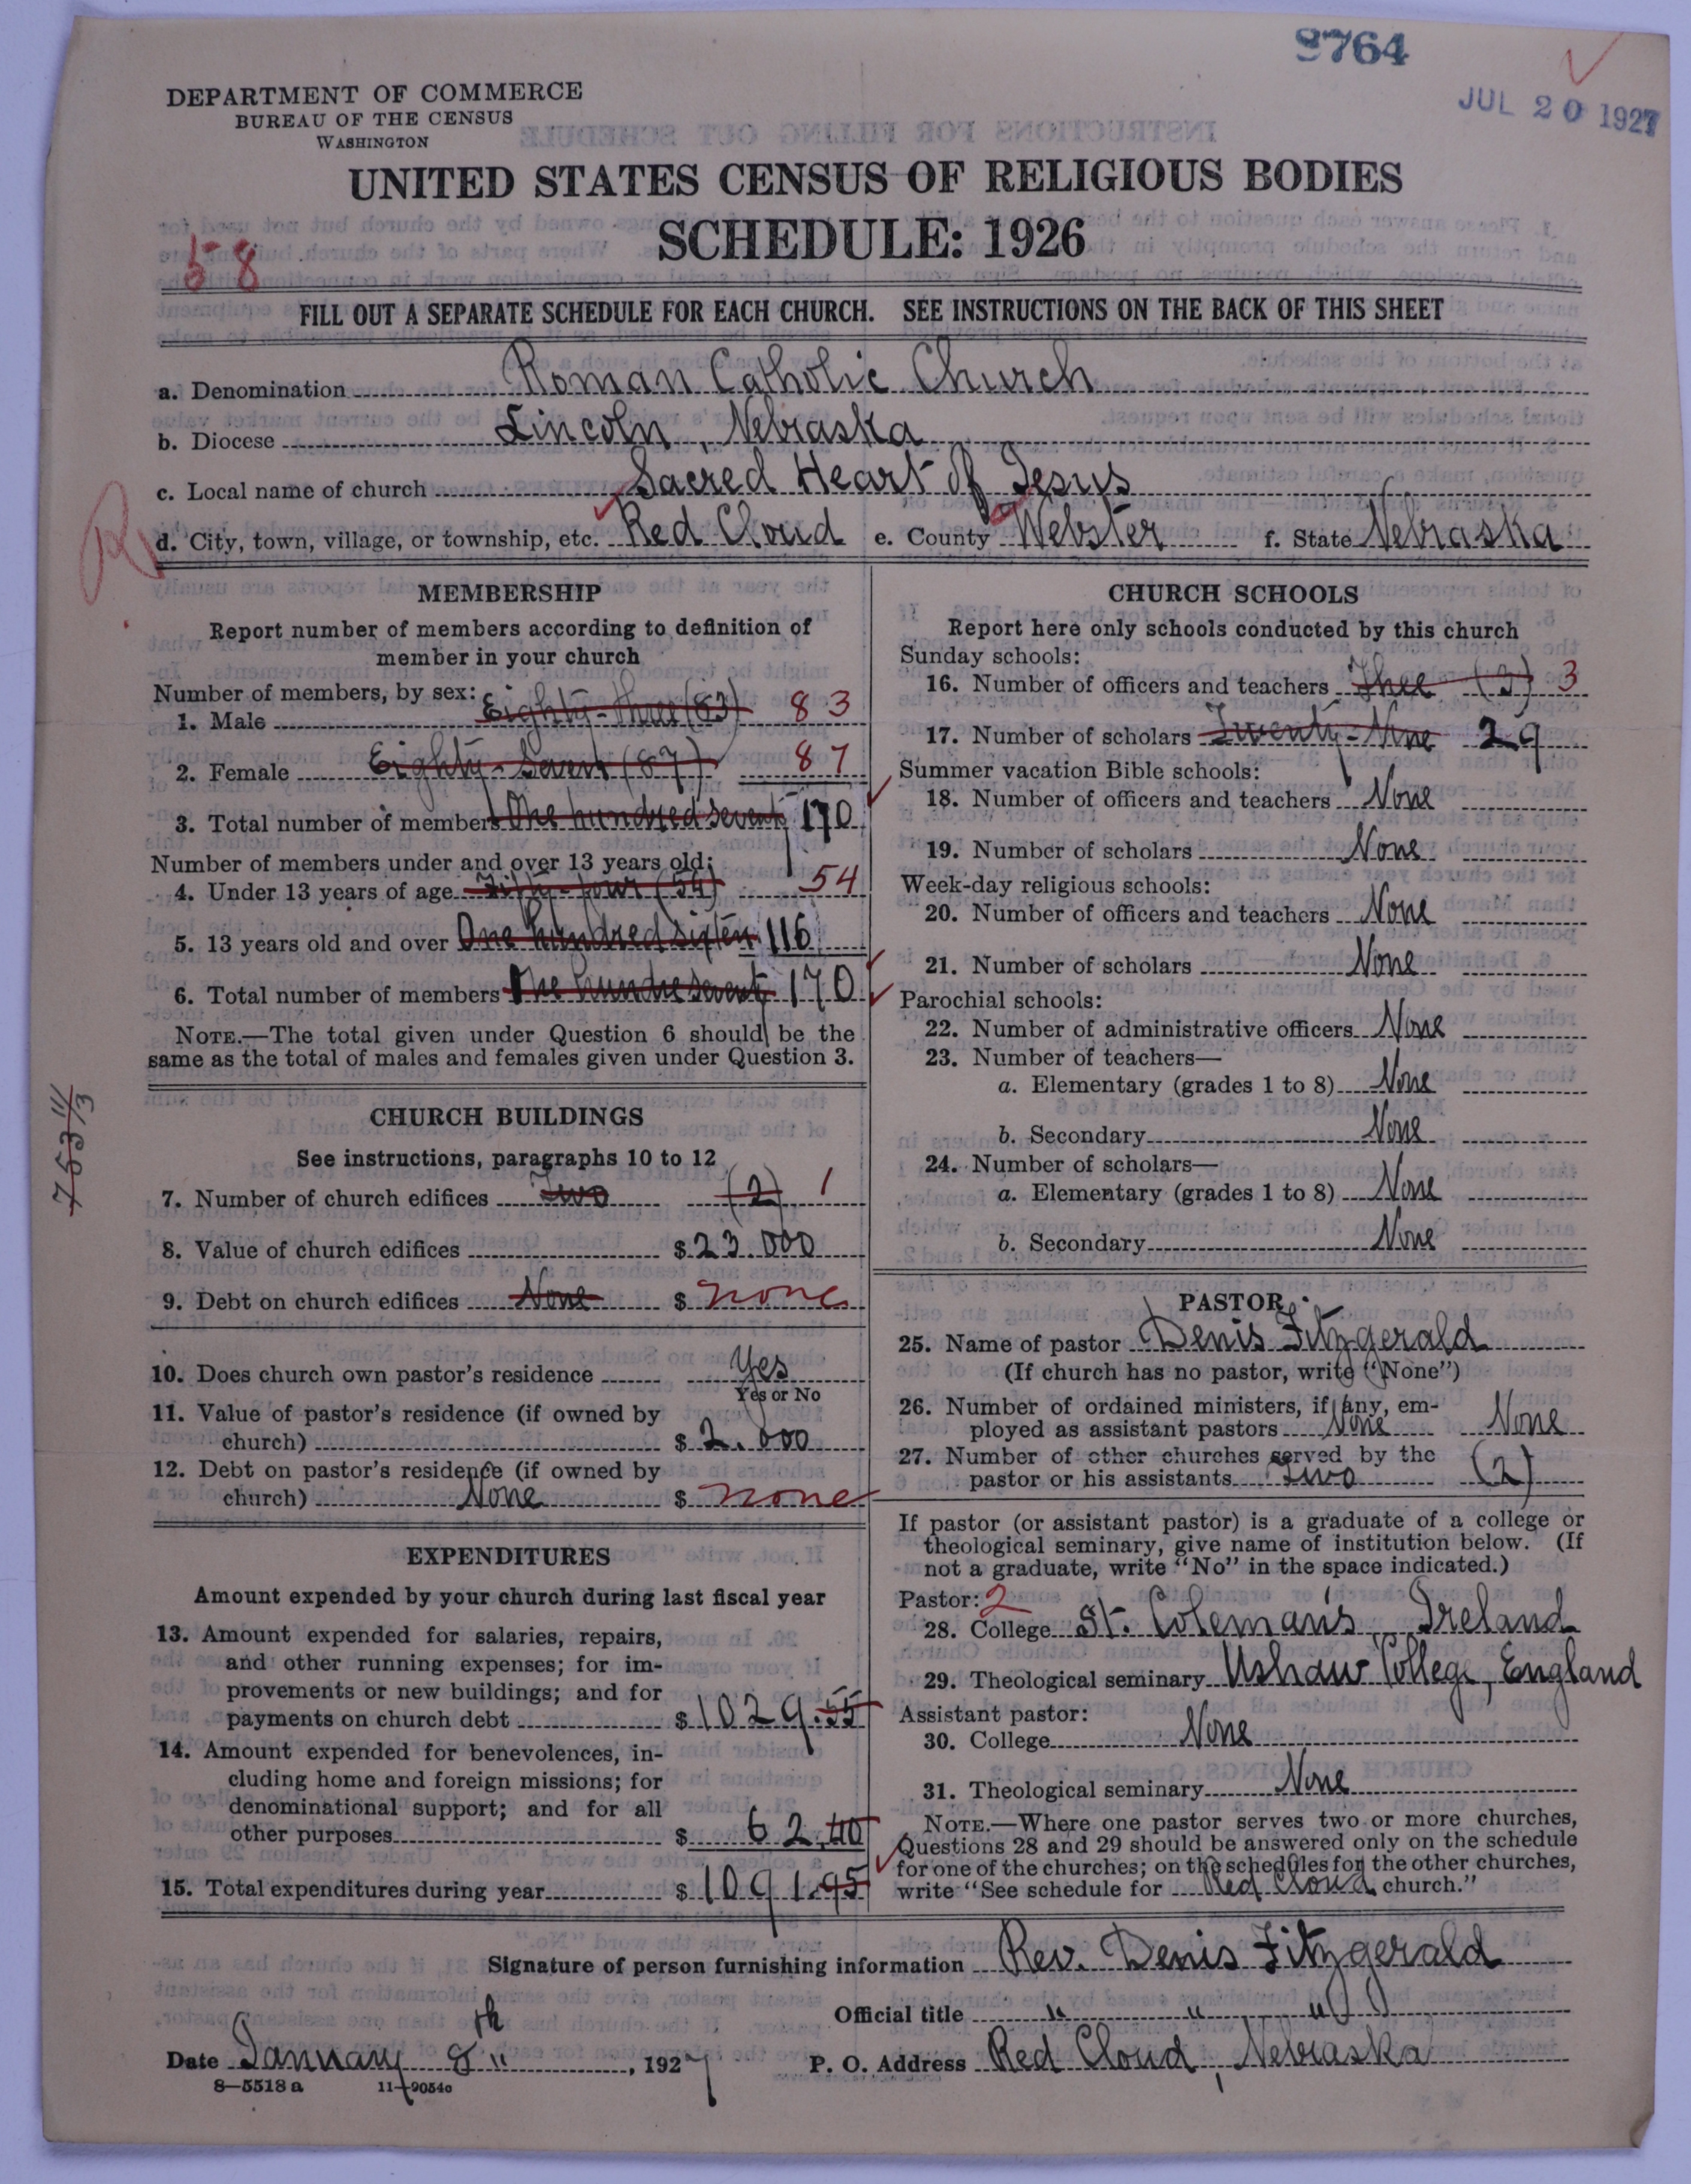 9764
JUL 20 1927
DEPARTMENT OF COMMERCE
BUREAU OF THE CENSUS
WASHINGTON
UNITED STATES CENSUS OF RELIGIOUS BODIES
SCHEDULE: 1926
58
FILL OUT A SEPARATE SCHEDULE FOR EACH CHURCH. SEE INSTRUCTIONS ON THE BACK OF THIS SHEET
a. Denomination Roman Catholic Church
b. Diocese Lincoln, Nebraska
c. Local name of church Sacred Heart of Jesus
R
d. City, town, village, or township, etc. Red Cloud e. County Webster f. State Nebraska
MEMBERSHIP
Report number of members according to definition of
member in your church
Number of members, by sex:
1. Male Eighty-three (83) 83
2. Female Eighty-Seven (87) 87
3. Total number of members One hundred seventy 170
Number of members under and over 13 years old:
4. Under 13 years of age Fifty-four (54) 54
5. 13 years old and over One hundred sixten 116
6. Total number of members One hundre seventy 170
NOTE.—The total given under Question 6 should be the
same as the total of males and females given under Question 3.
CHURCH BUILDINGS
See instructions, paragraphs 10 to 12
7. Number of church edifices Two (2) 1
8. Value of church edifices $ 23.000
9. Debt on church edifices None $ none
10. Does church own pastor's residence Yes
Yes or No
11. Value of pastor's residence (if owned by
church) $ 2.000
12. Debt on pastor's residence (if owned by
church) None $ none
EXPENDITURES
Amount expended by your church during last fiscal year
13. Amount expended for salaries, repairs,
and other running expenses; for im-
provements or new buildings; and for
payments on church debt $ 1029.55
14. Amount expended for benevolences, in-
cluding home and foreign missions; for
denominational support; and for all
other purposes $ 62.40
15. Total expenditures during year $ 1091.95
CHURCH SCHOOLS
Report here only schools conducted by this church
Sunday schools:
16. Number of officers and teachers Thee (3) 3
17. Number of scholars Twenty-Nine 29
Summer vacation Bible schools:
18. Number of officers and teachers None
19. Number of scholars None
Week-day religious schools:
20. Number of officers and teachers None
21. Number of scholars None
Parochial schools:
22. Number of administrative officers None
23. Number of teachers—
a. Elementary (grades 1 to 8) None
b. Secondary None
24. Number of scholars—
a. Elementary (grades 1 to 8) None
b. Secondary None
PASTOR
25. Name of pastor Denis Fitzgerald
(If church has no pastor, write "None")
26. Number of ordained ministers, if any, em-
ployed as assistant pastors None None
27. Number of other churches served by the
pastor or his assistants Two (2)
If pastor (or assistant pastor) is a graduate of a college or
theological seminary, give name of institution below. (If
not a graduate, write "No" in the space indicated.)
Pastor: 2
28. College St. Coleman's Ireland
29. Theological seminary Ushaw College, England
Assistant pastor:
30. College None
31. Theological seminary None
NOTE.—Where one pastor serves two or more churches,
Questions 28 and 29 should be answered only on the schedule
for one of the churches; on the schedules for the other churches,
write "See schedule for Red Cloud church."
Signature of person furnishing information Rev. Denis Fitzgerald
Official title " " "
Date January 8th, 1927 P. O. Address Red Cloud, Nebraska
8—5518 a 11—9054o